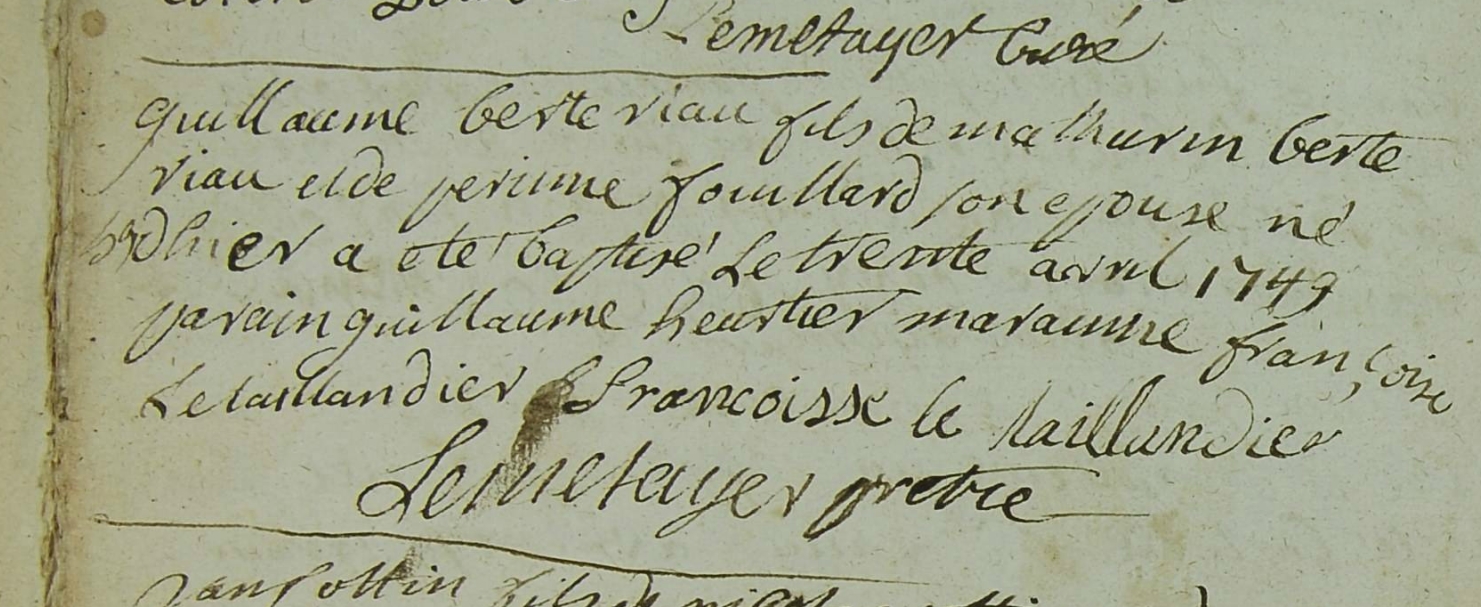 Lemetayer Curé
guillaume berteriau fils de mathurin berte
riau et de perinne fouillard son epouse né
hier a eté baptisé Le trente avril 1749
parain guillaume heurtier marainne françoise
Letaillandier francoisse le taillandier
Lemetayer pretre
fils de